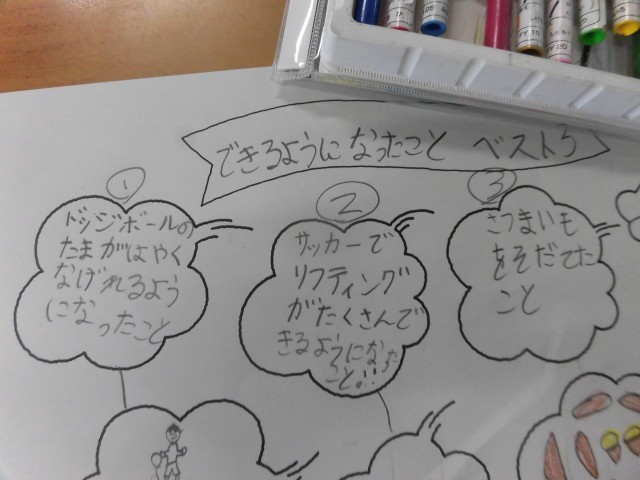 できるようになったこと ベスト3
①
ドッジボールの
たまがはやく
なげれるよう
になったこと
②
サッカーで
リフティング
がたくさんで
きるようになった
こと。!!
③
さつまいも
をそだてた
こと